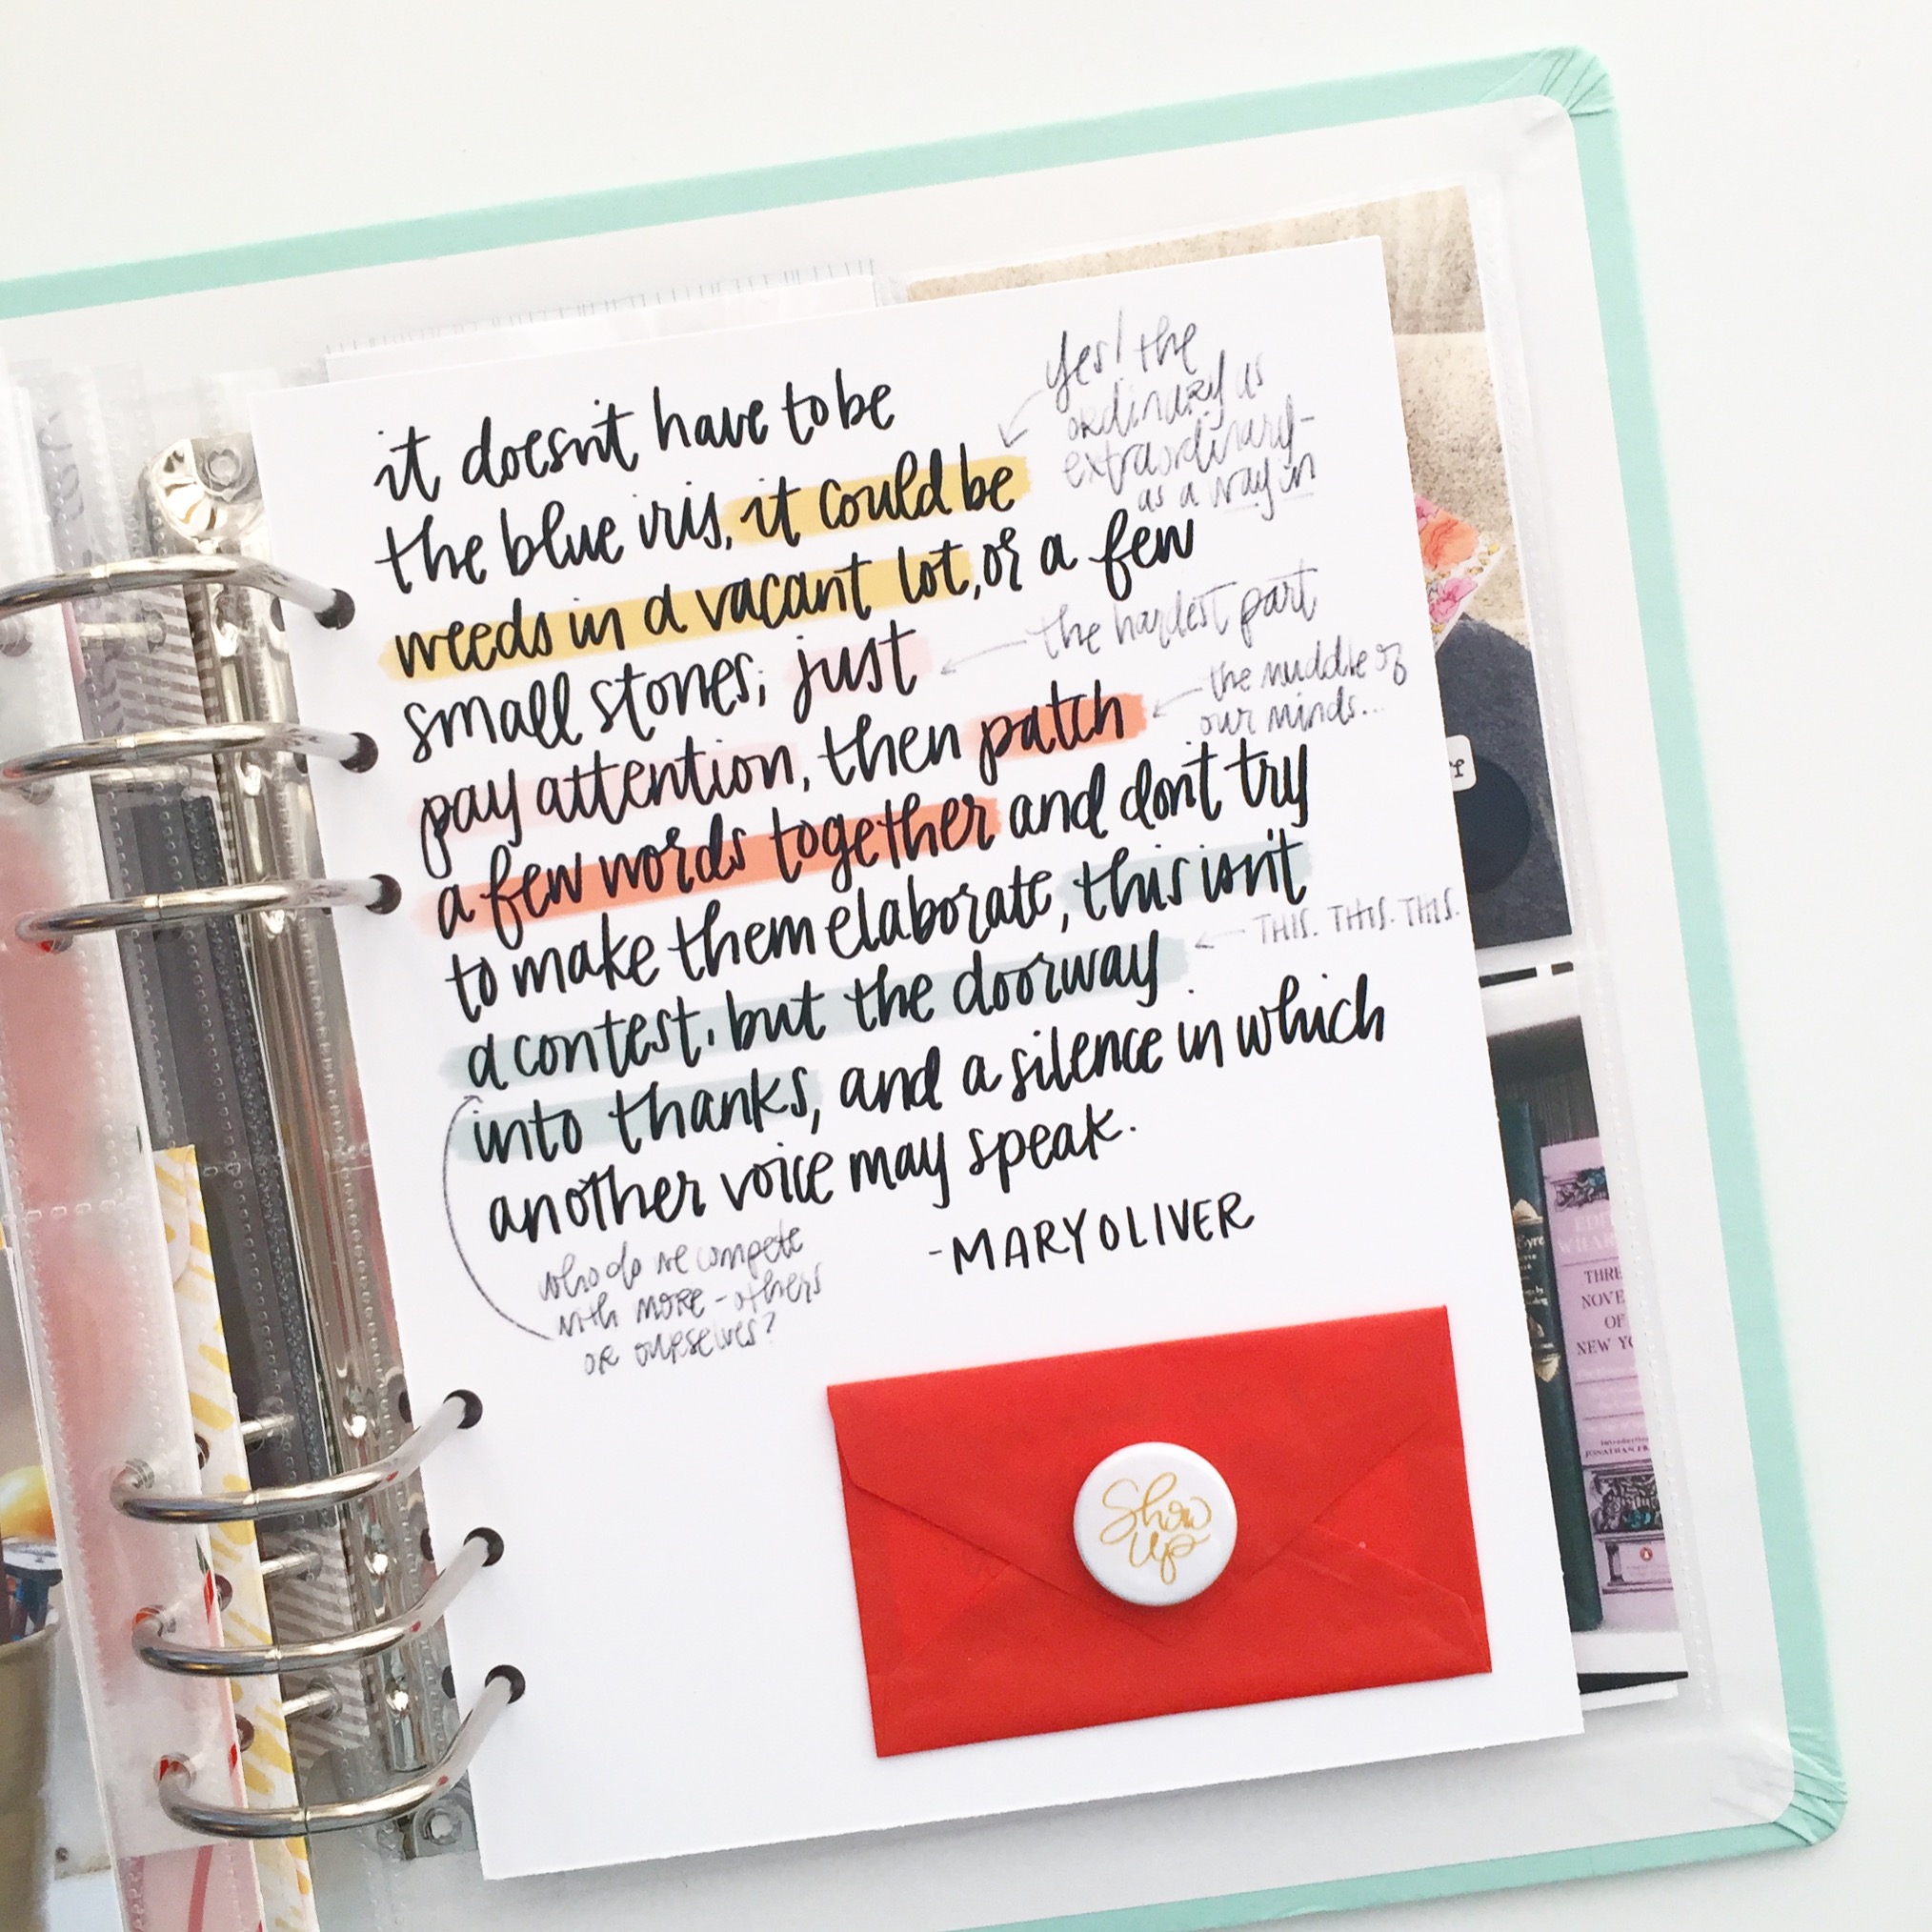 it doesn't have to be
the blue iris, it could be
weeds in a vacant lot, or a few
small stones; just
pay attention, then patch
a few words together and don't try
to make them elaborate, this isn't
a contest, but the doorway
into thanks, and a silence in which
another voice may speak.
-MARY OLIVER
yes! the
ordinary as
extraordinary-
as a way in
the hardest part
the muddle of
our minds...
THIS. THIS. THIS.
who do we compete
with MORE - others
or ourselves?
Show
up
Eyre
THRE
NOVE
OF
NEW YO
JONATHAN FR